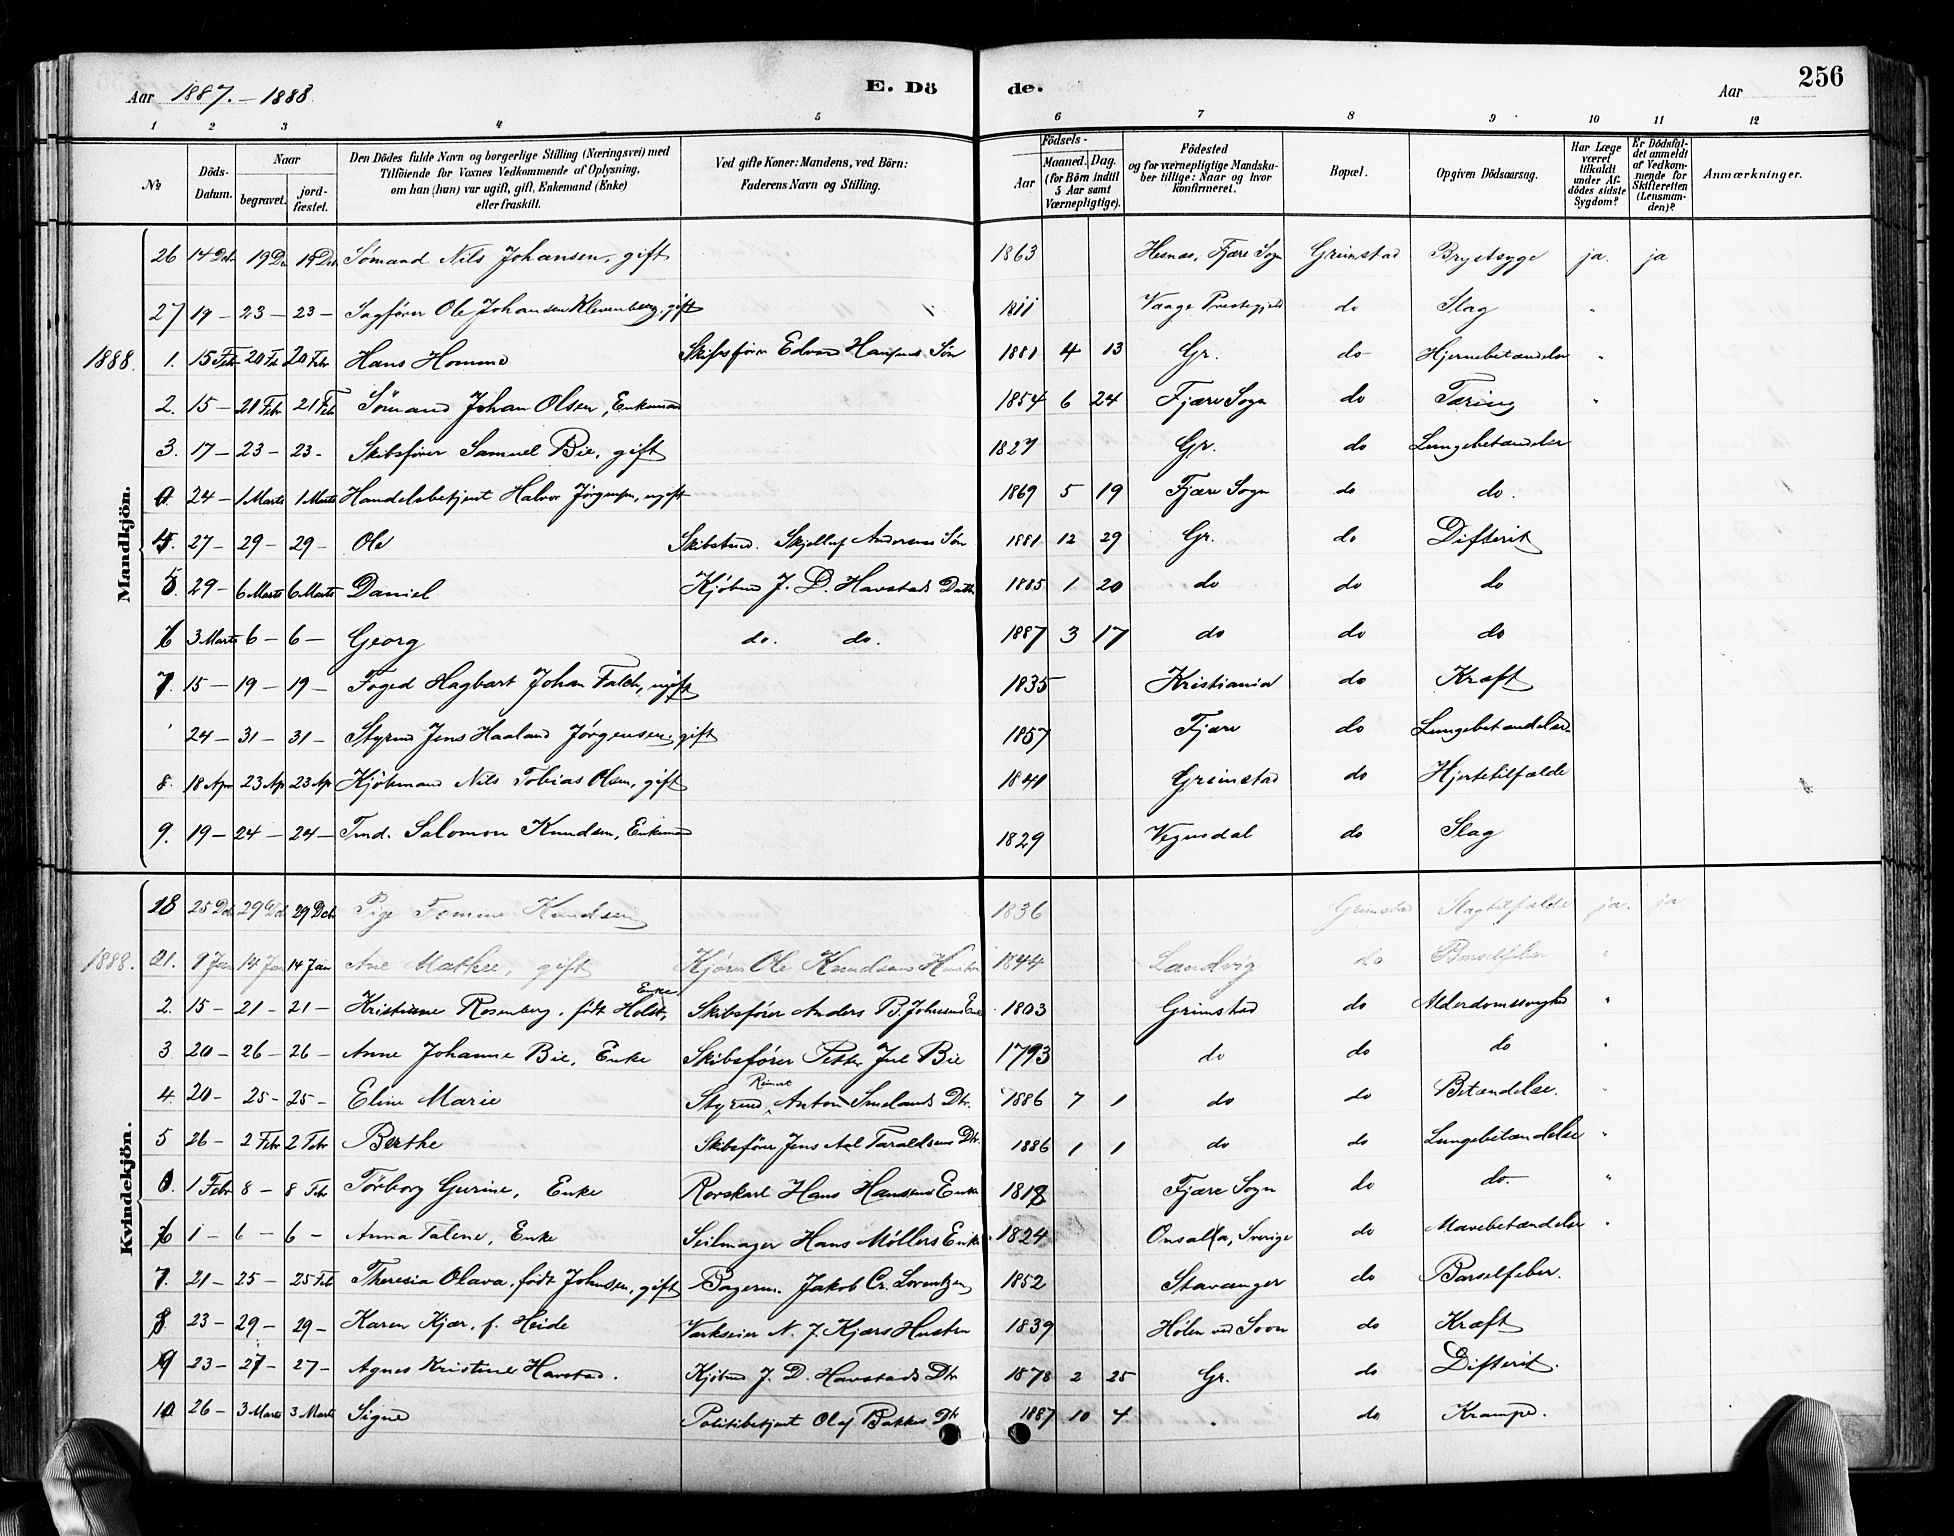 Aar 1887. – 1888.
E. Dö de.
Aar 256
1 2 3 4 5 6 7 8 9 10 11 12
No
Döds-Datum.
Naar
begravet.
jord-fæstet.
Den Dödes fulde Navn og borgerlige Stilling (Næringsvei) med
Tilföiende for Voxnes Vedkommende af Oplysning,
om han (hun) var ugift, gift, Enkemand (Enke)
eller fraskilt.
Ved gifte Koner: Mandens, ved Börn:
Faderens Navn og Stilling.
Födsels-
Aar
Maaned. Dag.
(for Börn indtil
5 Aar samt
Værnepligtige).
Födested
og for værnepligtige Mandska-
ber tillige: Naar og hvor
konfirmeret.
Bopæl.
Opgiven Dödsaarsag.
Har Læge
været
tilkaldt
under Af-
dödes sidste
Sygdom?
Er Dödsfal-
det anmeldt
af Vedkom-
mende for
Skifteretten
(Lensman-
den)?
Anmærkninger.
Mandkjön.
26 14 Dcb 19 Dc 19 Dcb Sømand Nils Johansen, gift 1863 Hesnæs, Fjære Sogn Grimstad Brystsyge ja. ja
27 19 – 23 – 23 – Sagfører Ole Johansen Klevenberg, gift 1811 Vaage Prestegjeld do Slag "
1888. 1. 15 Febr 20 Fe 20 Febr Hans Homme Skibsfører Edvard Hansens Søn 1881 4 13 Gr. do Hjernebetændelse "
2. 15 – 21 Febr 21 Feb Sømand Johan Olsen, Enkemand 1854 6 24 Fjære Sogn do Tæring "
3. 17 – 23 – 23 – Skibsfører Samuel Bie, gift 1827 Gr. do Lungebetændelse
24 – 1 Marts 1 Marts Handelsbetjent Halvor Jørgensen, ugift 1869 5 19 Fjære Sogn do do.
4. 27 – 29 – 29 – Ole Skibstmd. Skjelluf Andersens Søn 1881 12 29 Gr. do Difterit
5. 29 – 6 Marts 6 Marts Daniel Kjøbmd J. D. Havstads Datter 1885 1 20 do do do
6 3 Marts 6 – 6 – Georg do. do. 1887 3 17 do do do
7. 15 – 19 – 19 – Foged Hagbart Johan Falch, ugift 1835 Kristiania do Kræft
24 – 31 – 31 – Styrmd Jens Haaland Jørgensen, gift 1857 Fjære do Lungebetændelse
8. 18 Apr 23 Ap 23 Ap Kjøbmand Nils Tobias Olsen, gift 1841 Grimstad do Hjertetilfælde
9. 19 – 24 – 24 – Tmd. Salomon Knudsen, Enkemand 1829 Vegusdal do Slag
Kvindekjön.
18 25 Dcb 29 Dcb 29 Dcb Pige Tomine Knudsen 1836 Grimstad Slagtilfælde ja. ja
1888. 1. 9 Jan 14 Jan 14 Jan Ane Mathee, gift Kjører Ole Knudsens Hustru 1844 Landvig do Barselfeber "
2. 15 – 21 – 21 – Kristiane Rosenberg, født Holst, Enke Skibsfører Anders B. Johnsens Enke 1803 Grimstad do Alderdomssvaghed "
3 20 – 26 – 26 – Anne Johanne Bie, Enke Skibsfører Petter Jul Bie 1793 do do do "
4. 20 – 25 – 25 – Eline Marie Styrmd Reinert Anton Smelands Dtr. 1886 7 1 do do Betændelse. "
5 26 – 2 Febr 2 Febr Berthe Skibsfører Jens Aal Taraldsens Dtr. 1886 1 1 do do Lungebetændelse "
1 Febr 8 – 8 Febr Tørborg Gurine, Enke Rorskarl Hans Hansens Enke 1818 Fjære Sogn do do "
6 1 – 6 – 6 – Anna Talene, Enke Seilmager Hans Møllers Enke 1824 Onsala, Sverige do Mavebetændelse "
7. 21 – 25 – 25 Feb Theresia Olava, født Johnsen, gift Bagerm. Jakob Cr. Lorentzen 1852 Stavanger do Barselfeber.
8 23 – 29 – 29 – Karen Kjær, f. Heide Værkseier N. J. Kjærs Hustru 1839 Hølen ved Soon do Kræft
9 23 – 27 – 27 – Agnes Kristine Havstad. Kjøbmd J. D. Havstads Dtr 1878 2 25 Gr. do Difterit.
10 26 – 3 Marts 3 Marts Signe Politibetjent Olaf Bakkes Dtr 1887 10 4 " do Krampe.